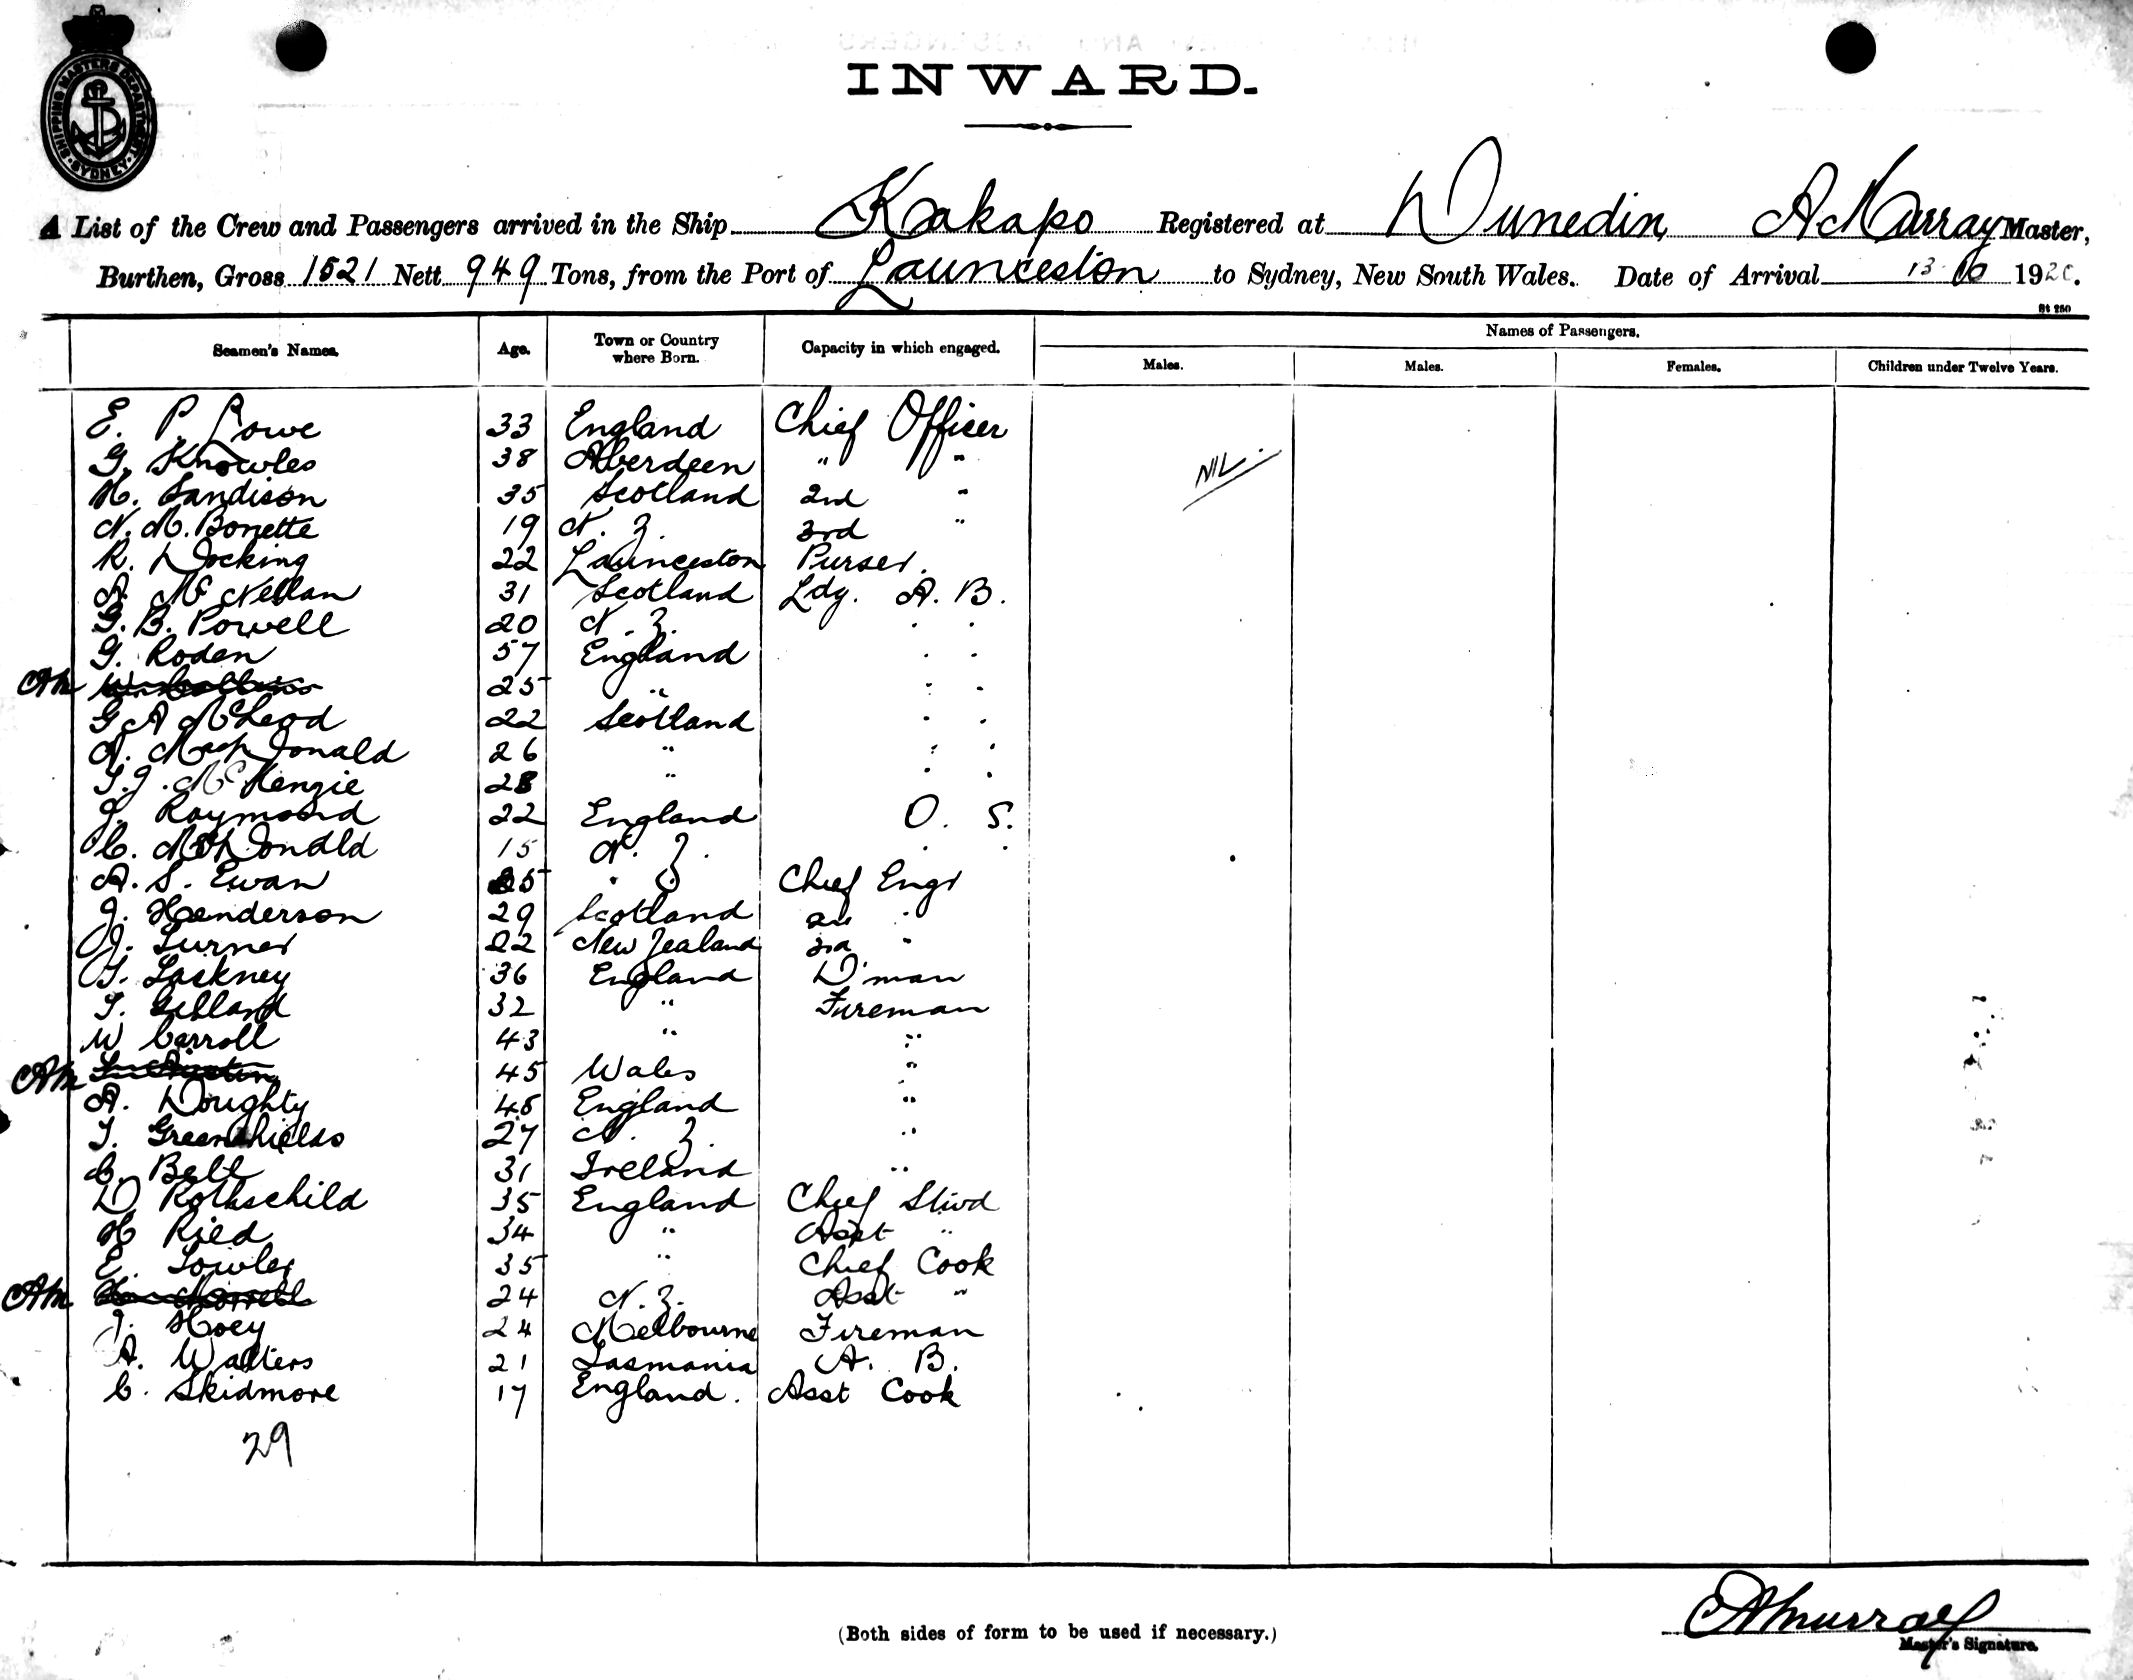 SHIPPING MASTERS DEPARTMENT SYDNEY
INWARD.
A List of the Crew and Passengers arrived in the Ship Kakapo Registered at Dunedin, A Murray Master,
Burthen, Gross 1521 Nett 949 Tons, from the Port of Launceston to Sydney, New South Wales. Date of Arrival 13 10 1920.
St 250
Seamen's Names. Age. Town or Country where Born. Capacity in which engaged. Names of Passengers.
Males. Males. Females. Children under Twelve Years.
E. P. Lowe 33 England Chief Officer
G. Knowles 38 Aberdeen " "
NIL
H. Sandison 35 Scotland 2nd "
N. M. Bonette 19 N. Z. 3rd "
R. Docking 22 Launceston Purser.
A. McNellan 31 Scotland Ldg. A. B.
G. B. Powell 20 N. Z. " "
G. Roden 57 England " "
AM W. 25 " " "
G A McLeod 22 Scotland " "
A. MacDonald 26 " " "
T. J. McKenzie 28 " " "
J. Raymond 22 England O. S.
C. McDonald 15 N. Z. " "
A. S. Ewan 25 " Chief Engr
J. Henderson 29 Scotland 2nd "
J. Turner 22 New Zealand 3rd "
T. Lackney 36 England D'man
T. 32 " Fireman
W Carroll 43 " "
AM 45 Wales "
A. Doughty 48 England "
T. Greenshields 27 N. Z. "
C. Bell 31 Ireland "
D Rothschild 35 England Chief Stwd
H Ried 34 " Asst "
E. Towler 35 " Chief Cook
AM Morrell 24 N. Z. Asst "
J. Hoey 24 Melbourne Fireman
A. Walters 21 Tasmania A. B.
C. Skidmore 17 England. Asst Cook
29
A Murray
Master's Signature.
(Both sides of form to be used if necessary.)